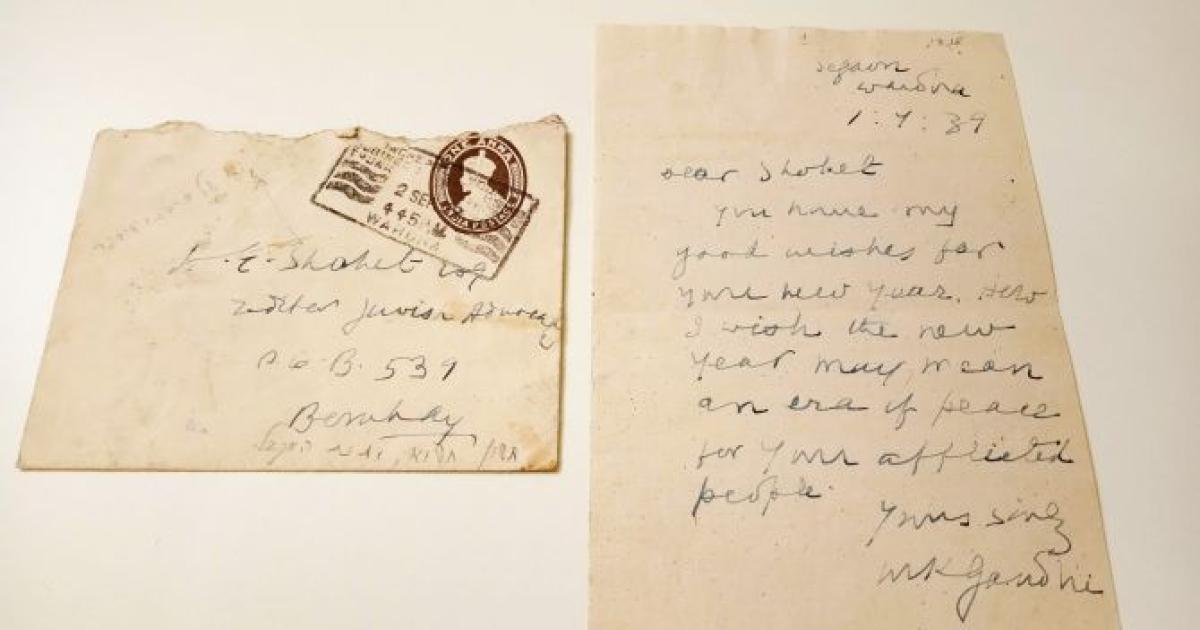 ONE ANNA
INDIA POSTAGE
2 SE
4 45
WARDHA
A. E. Shohet Esq
Editor Jewish Advocate
P O B. 539
Bombay
Segaon
Wardha
1:9:39
Dear Shohet
You have my
good wishes for
your new year. How
I wish the new
year may mean
an era of peace
for your afflicted
people.
Yours
MKGandhi